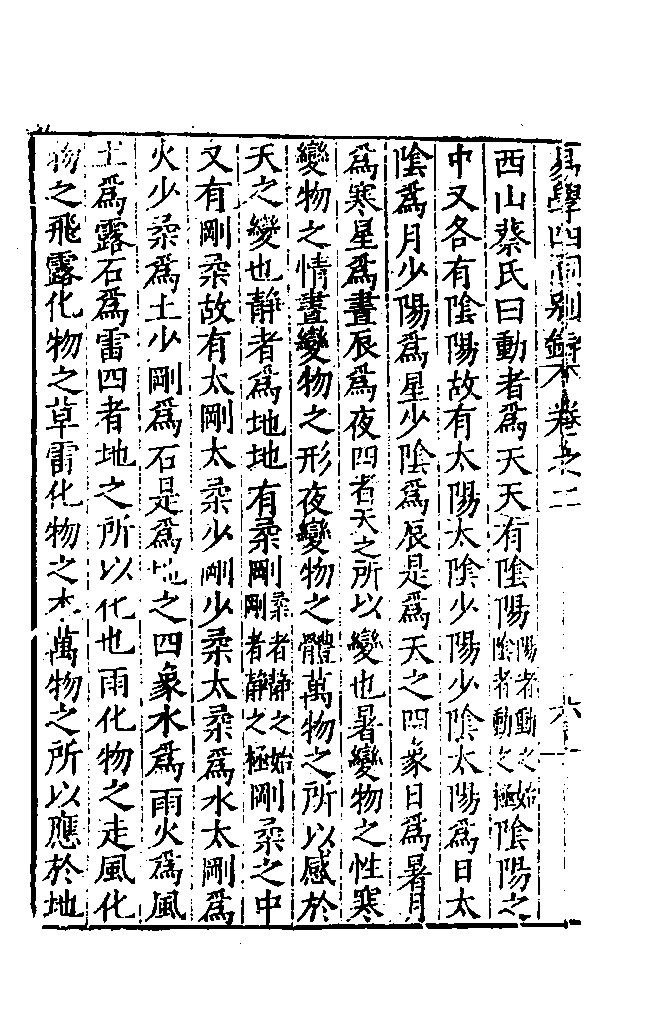 易學四同別錄卷之二 六
西山蔡氏曰動者爲天天有陰陽陽者動之始陰者動之極陰陽之
中又各有陰陽故有太陽太陰少陽少陰太陽爲日太
陰爲月少陽爲星少陰爲辰是爲天之四象日爲暑月
爲寒星爲晝辰爲夜四者天之所以變也暑變物之性寒
變物之情晝變物之形夜變物之體萬物之所以感於
天之變也靜者爲地地有柔剛柔者靜之始剛者靜之極剛柔之中
又有剛柔故有太剛太柔少剛少柔太柔爲水太剛爲
火少柔爲土少剛爲石是爲地之四象水爲雨火爲風
土爲露石爲雷四者地之所以化也雨化物之走風化
物之飛露化物之草雷化物之木萬物之所以應於地